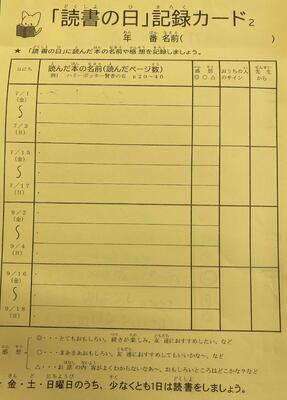 「読書の日」記録カード2
年 番 名前( )
★ 「読書の日」に読んだ本の名前や感想を記録しましょう。
日にち 読んだ本の名前(読んだページ数) 感想 おうちの人 先生
例) ハリーポッター賢者の石 p20～40 ◎ ○ △ のサイン から
7/1
～
7/3
7/15
～
7/17
9/2
～
9/4
9/16
～
9/18
感想
◎・・・とてもおもしろい。続きが楽しみ。友達におすすめしたい。など
○・・・まあまあおもしろい。友達におすすめしてもいいかな～。など
△・・・お話の内容がよくわからないなあ～。おもしろいところはどこかな?など
金・土・日曜日のうち、少なくとも1日は読書をしましょう。